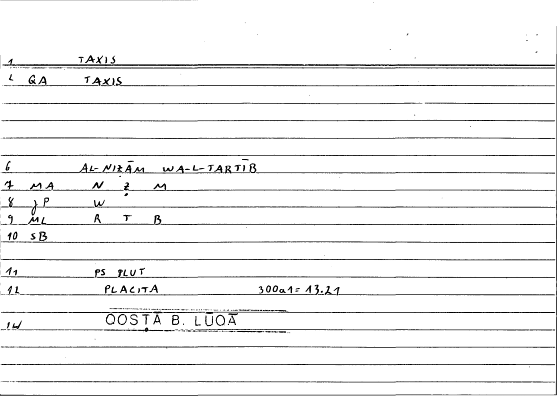 1 TAXIS
2 GA TAXIS
6 AL-NIẒĀM WA-L-TARTĪB
7 MA N Ẓ M
8 JP W
9 ML R T B
10 SB
11 PS PLUT
12 PLACITA 300a1 = 13.21
QOSṬĀ B. LŪQĀ